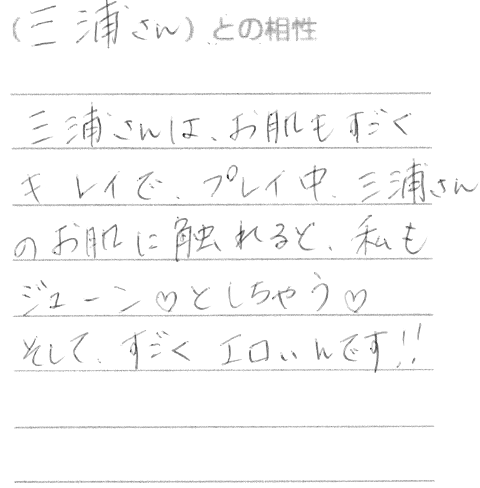 （三浦さん）との相性
三浦さんは、お肌もすごく
キレイで、プレイ中、三浦さん
のお肌に触れると、私も
ジューン♡としちゃう♡
そして、すごくエロいんです!!